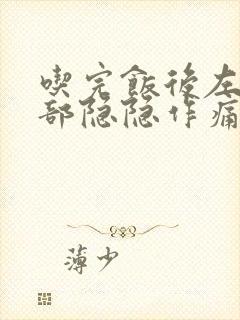 喫完飯後左
部隐隐作痛
薄少